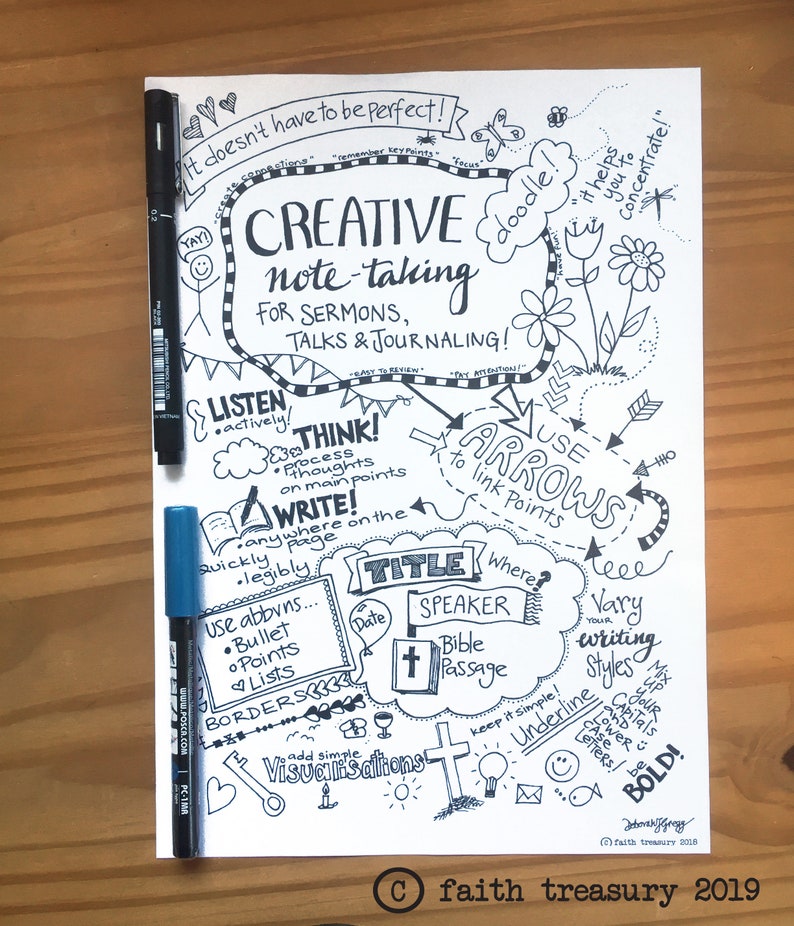 It doesn't have to be perfect!
"create connections"
"remember key points"
"focus"
doodle!
"it helps
you to
concentrate!"
"have fun"
YAY!
CREATIVE
note-taking
FOR SERMONS,
TALKS & JOURNALING!
"EASY TO REVIEW"
"PAY ATTENTION!"
LISTEN
• actively!
THINK!
• process
thoughts
on main points
WRITE!
• anywhere on the
page
quickly
• legibly
USE
ARROWS
to link points
TITLE
Where?
SPEAKER
Date
Bible
Passage
Use abbvns...
• Bullet
Points
Lists
BORDERS
Vary
YOUR
writing
styles
MIX
UP
YOUR
CAPITALS
and
LOWER
CASE
LETTERS!
be
BOLD!
keep it simple!
Underline
add simple
Visualisations
Deborah J Gregg
© faith treasury 2018
0.2
PIN 02-200
MITSUBISHI PENCIL CO., LTD.
IN VIETNAM
WWW.POSCA.COM
PC-1MR
© faith treasury 2019